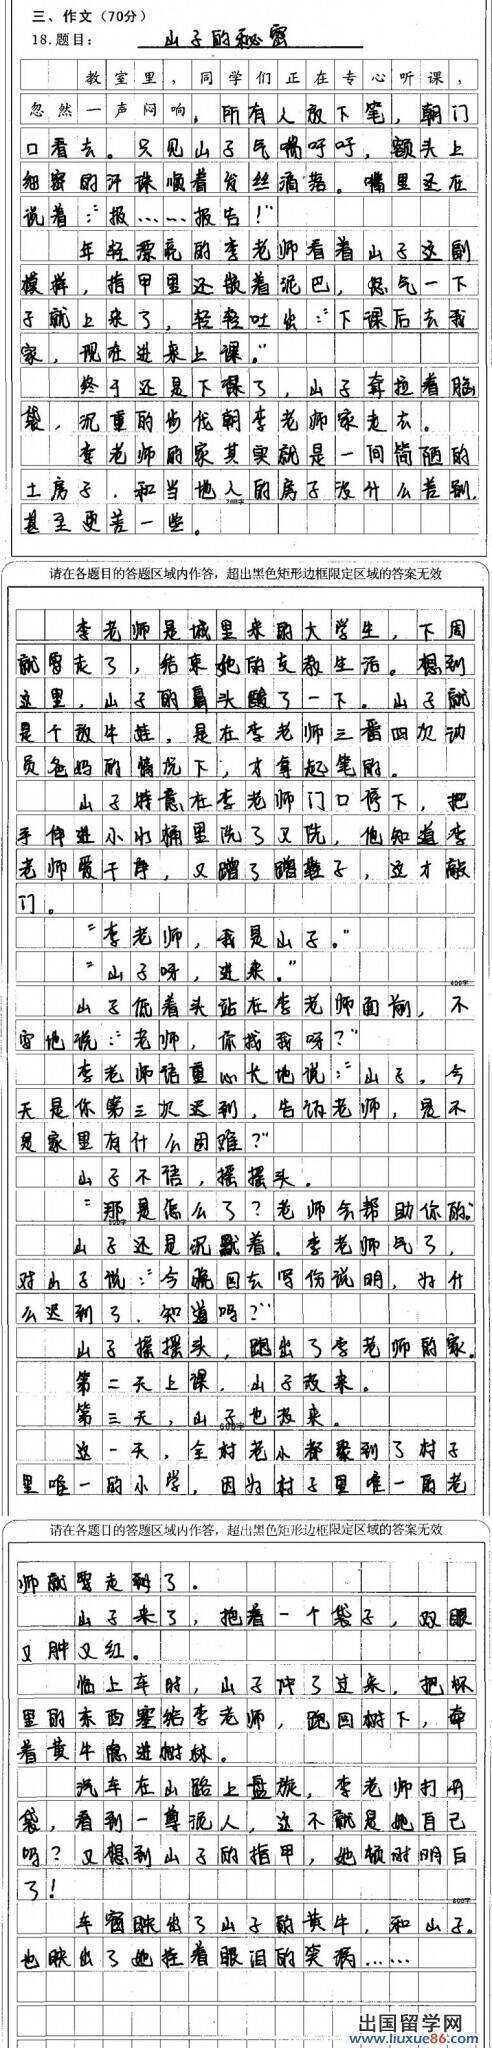 三、作文（70分）
18.题目： 山子的秘密
教室里，同学们正在专心听课，
忽然一声闷响。所有人放下笔，朝门
口看去。只见山子气喘吁吁，额头上
细密的汗珠顺着发丝滴落。嘴里还在
说着：“报……报告！”
年轻漂亮的李老师看着山子这副
模样，指甲里还嵌着泥巴，怒气一下
子就上来了，轻轻吐出：“下课后去我
家，现在进来上课。”
终于还是下课了，山子耷拉着脑
袋，沉重的步伐朝李老师家走去。
李老师的家其实就是一间简陋的
土房子．和当地人的房子没什么差别，
200字
甚至更差一些。
请在各题目的答题区域内作答，超出黑色矩形边框限定区域的答案无效
李老师是城里来的大学生，下周
就要走了，结束她的支教生活。想到
这里，山子的鼻头酸了一下。山子就
是个放牛娃，是在李老师三番四次动
员爸妈的情况下，才拿起笔的。
山子特意在李老师门口停下，把
手伸进小水桶里洗了又洗，他知道李
老师爱干净，又蹭了蹭鞋子，这才敲
门。
“李老师，我是山子。”
“山子呀，进来。”
400字
山子低着头站在李老师面前，不
安地说：“老师，你找我呀？”
李老师语重心长地说：“山子，今
天是你第三次迟到，告诉老师，是不
是家里有什么困难？”
山子不语，摇摇头．
“那是怎么了？老师会帮助你的。”
山子还是沉默着．李老师气了，
对山子说：“今晚回去写份说明，为什
么迟到了．知道吗？”
山子摇摇头，跑出了李老师的家．
第二天上课．山子没来．
第三天，山子也没来．
600字
这一天，全村老小都聚到了村子
里唯一的小学，因为村子里唯一的老
请在各题目的答题区域内作答，超出黑色矩形边框限定区域的答案无效
师就要走了．
山子来了，抱着一个袋子，双眼
又肿又红．
临上车时，山子冲了过来，把怀
里的东西塞给李老师，跑回树下，牵
着黄牛隐进树林。
汽车在山路上盘旋，李老师打开
袋，看到一尊泥人，这不就是她自己
吗？又想到山子的指甲，她顿时明白
了！
800字
车窗映出了山子的黄牛，和山子．
也映出了她挂着眼泪的笑窝……
出国留学网
www.liuxue86.com